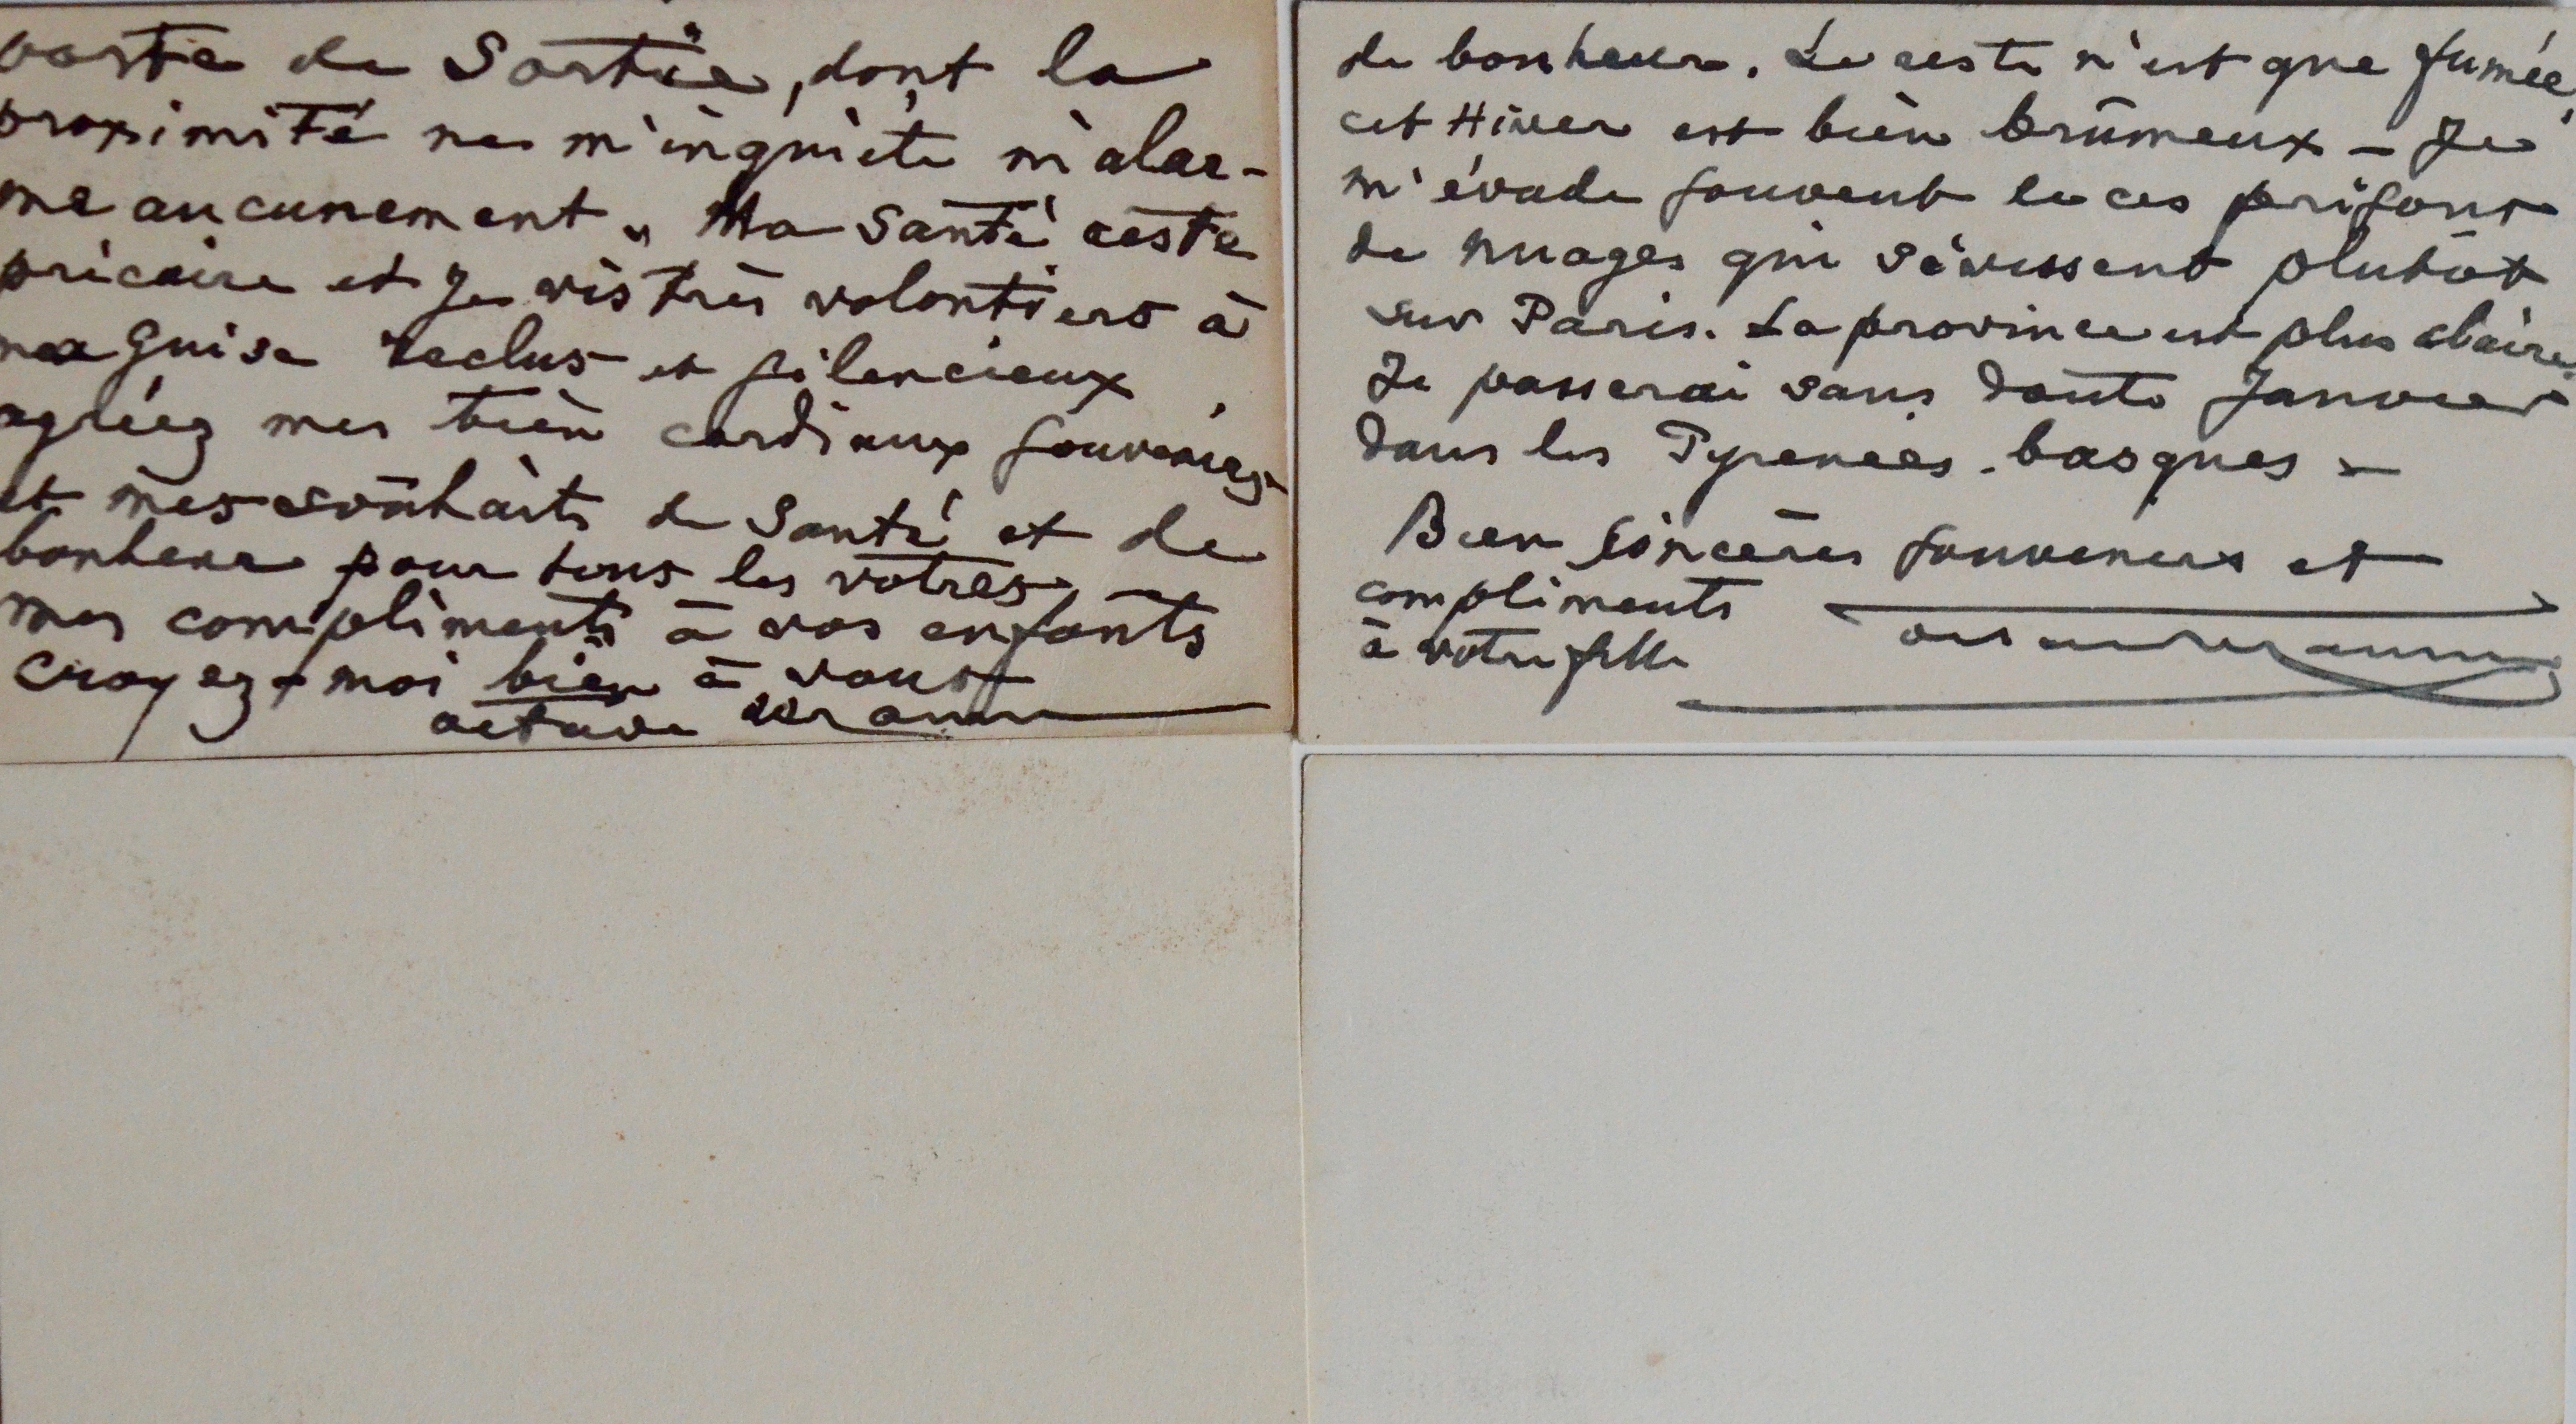 porte de Sortie, dont la
proximité ne m'inquiète ni alar-
me aucunement. Ma Santé reste
précaire et Je vis très volontiers à
ma guise reclus et silencieux,
agréez mes bien cordiaux souvenirs
et mes souhaits de Santé et de
bonheur pour tous les votres,
mes compliments à vos enfants
croyez-moi bien à vous
octave uzanne
de bonheur. Le reste n'est que fumée,
cet Hiver est bien brûmeux - Je
m'évade souvent de ces prisons
de nuages qui sévissent plutôt
sur Paris. La province est plus claire
Je passerai sans doute Janvier
dans les Pyrenées-basques -
Bien sincères souvenirs et
compliments
à votre fille